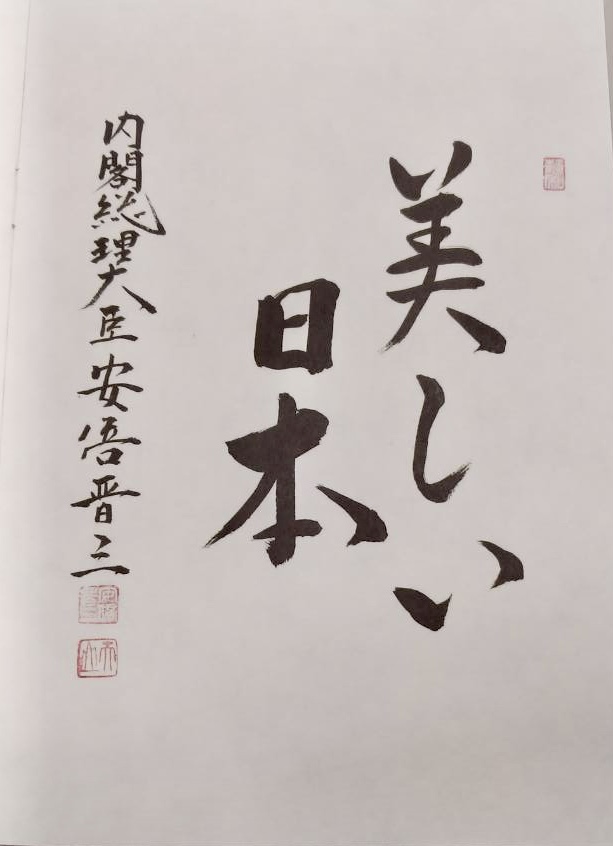 美しい
日本
内閣総理大臣安倍晋三